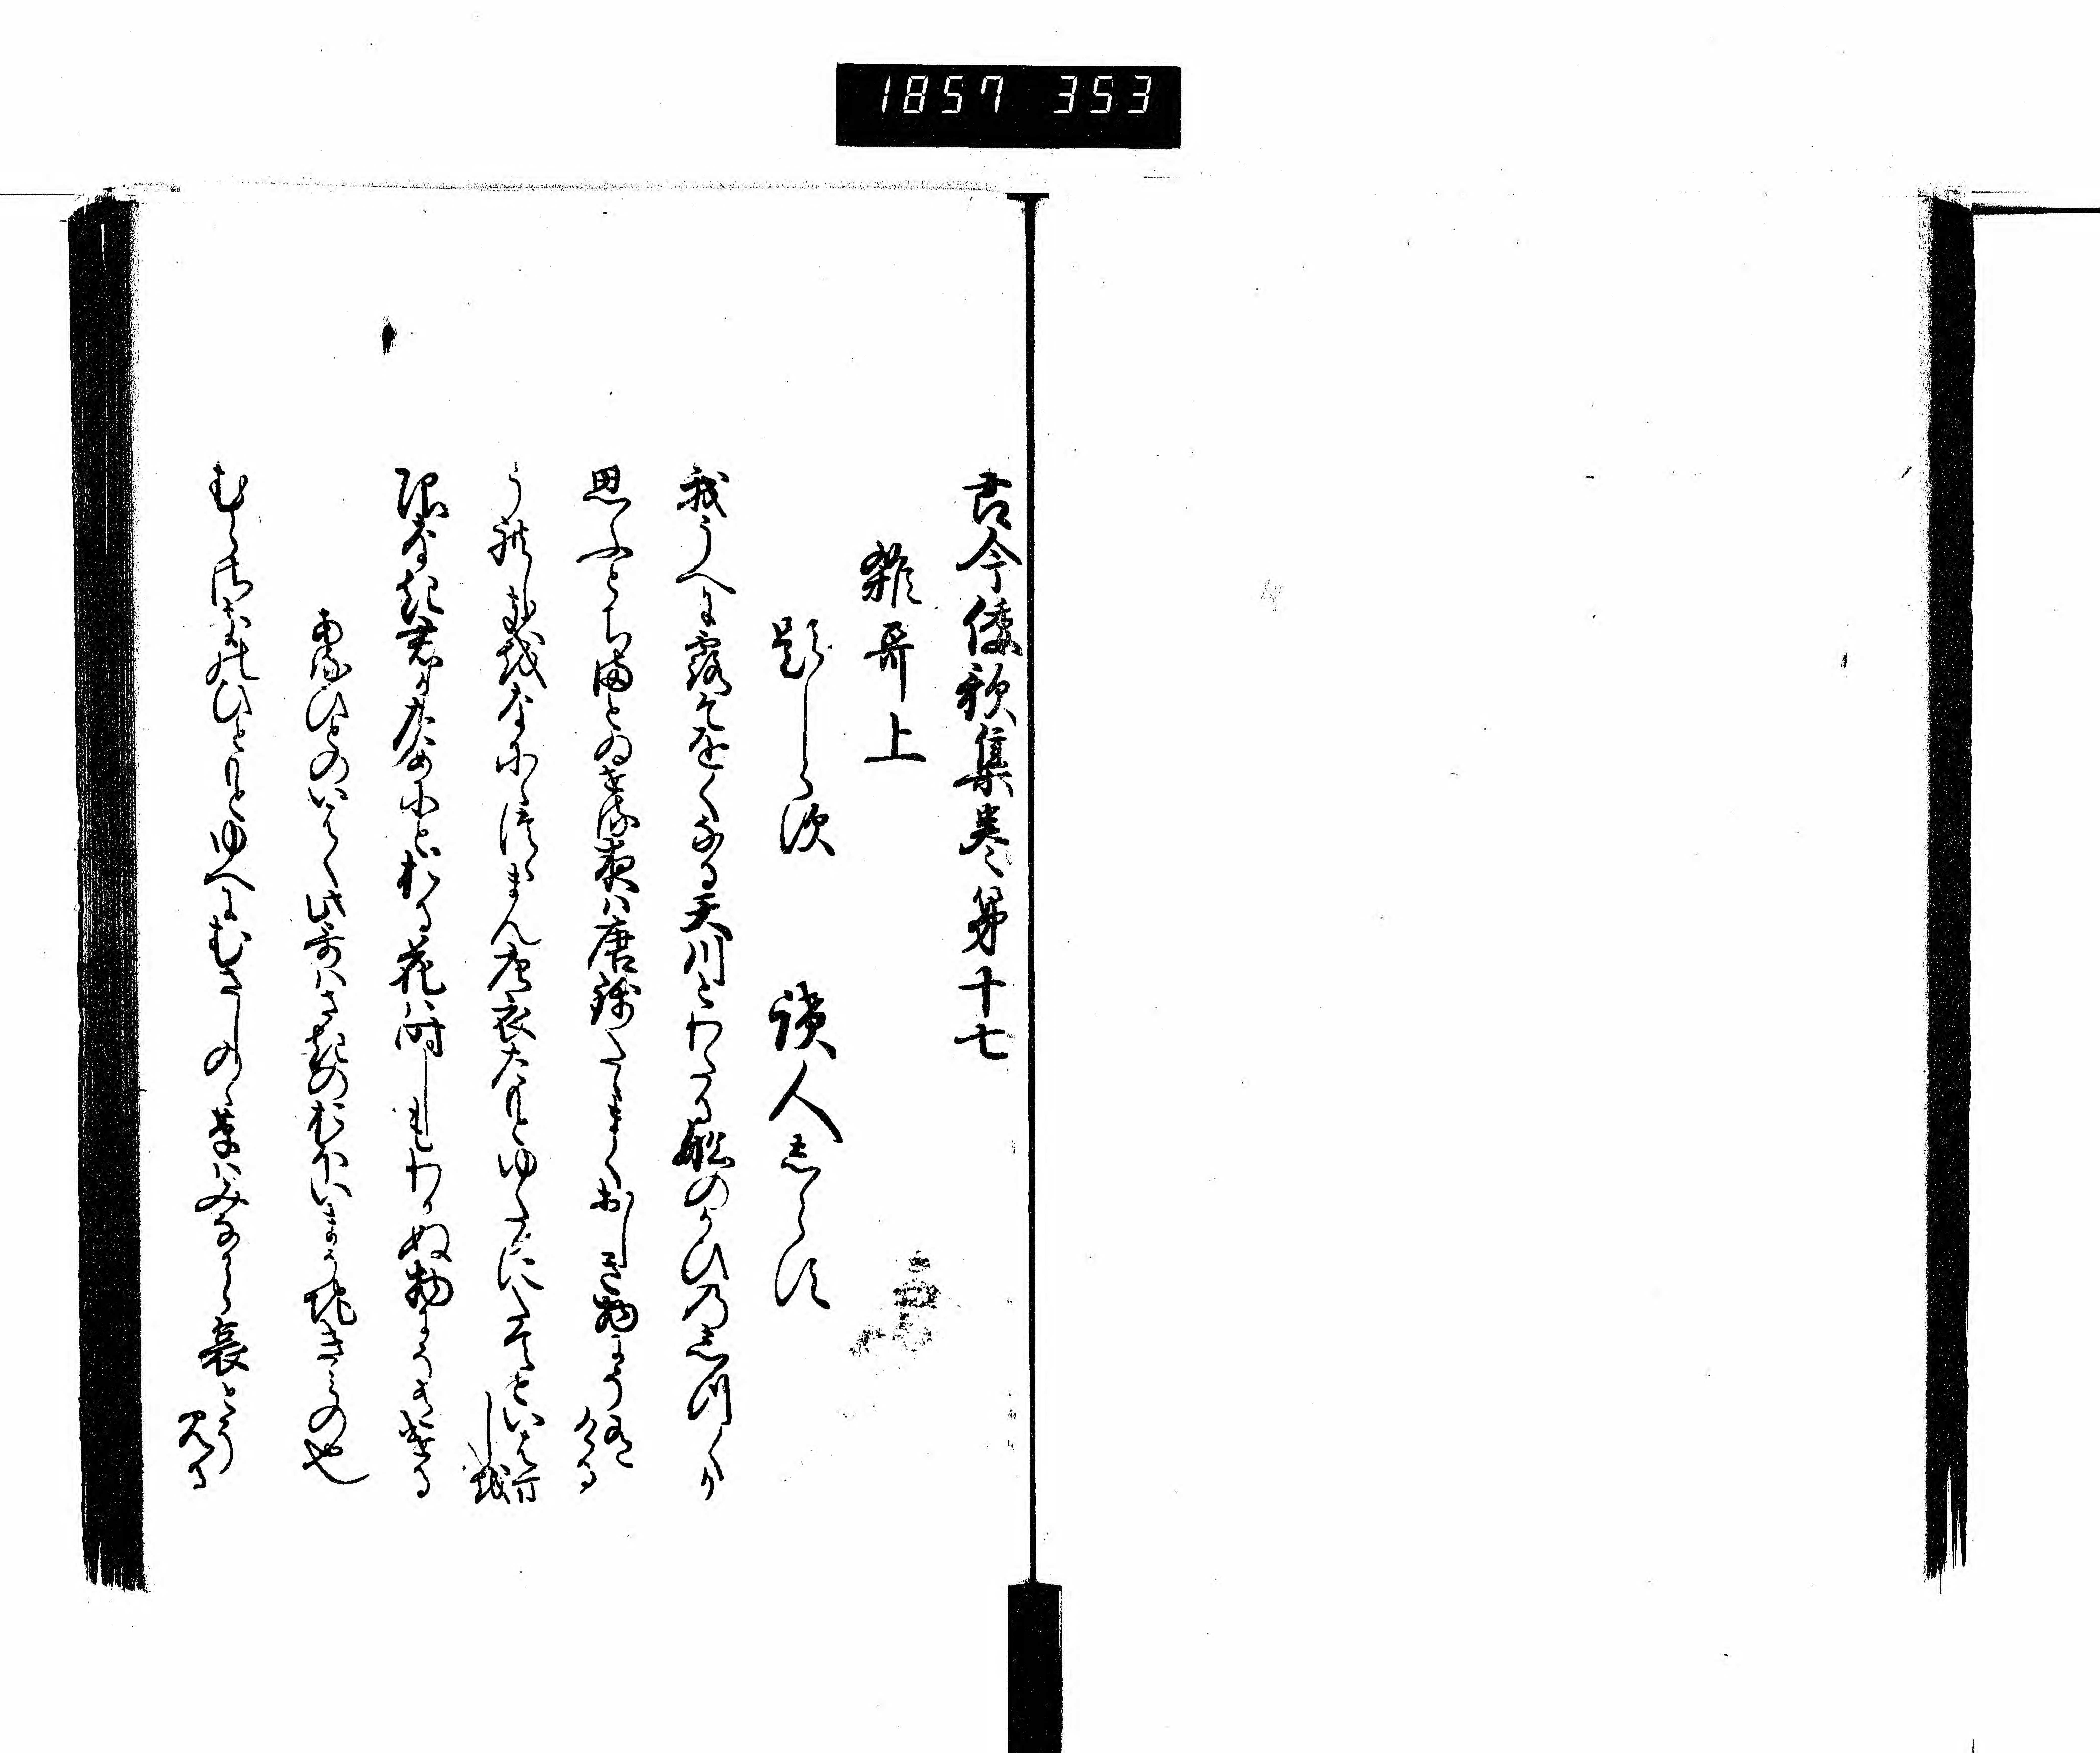 1857 353
古今倭歌集巻第十七
雑哥上
題しらす 読人しらす
我うへに露そをくなる天川とわたる舩のかひのしつくか
思ふとちまとゐせる夜は唐錦たゝまくおしき物にそ有ける
うれしきをなにゝつゝまん唐衣たもとゆたかにたてといはまし を
限なき君かためにとおる花は時しもわかぬ物にそ有ける
ある人のいはく此哥はさきのおほいまうち君の也
むらさきのひともとゆへにむさしのゝ草はみなから哀とそ見る